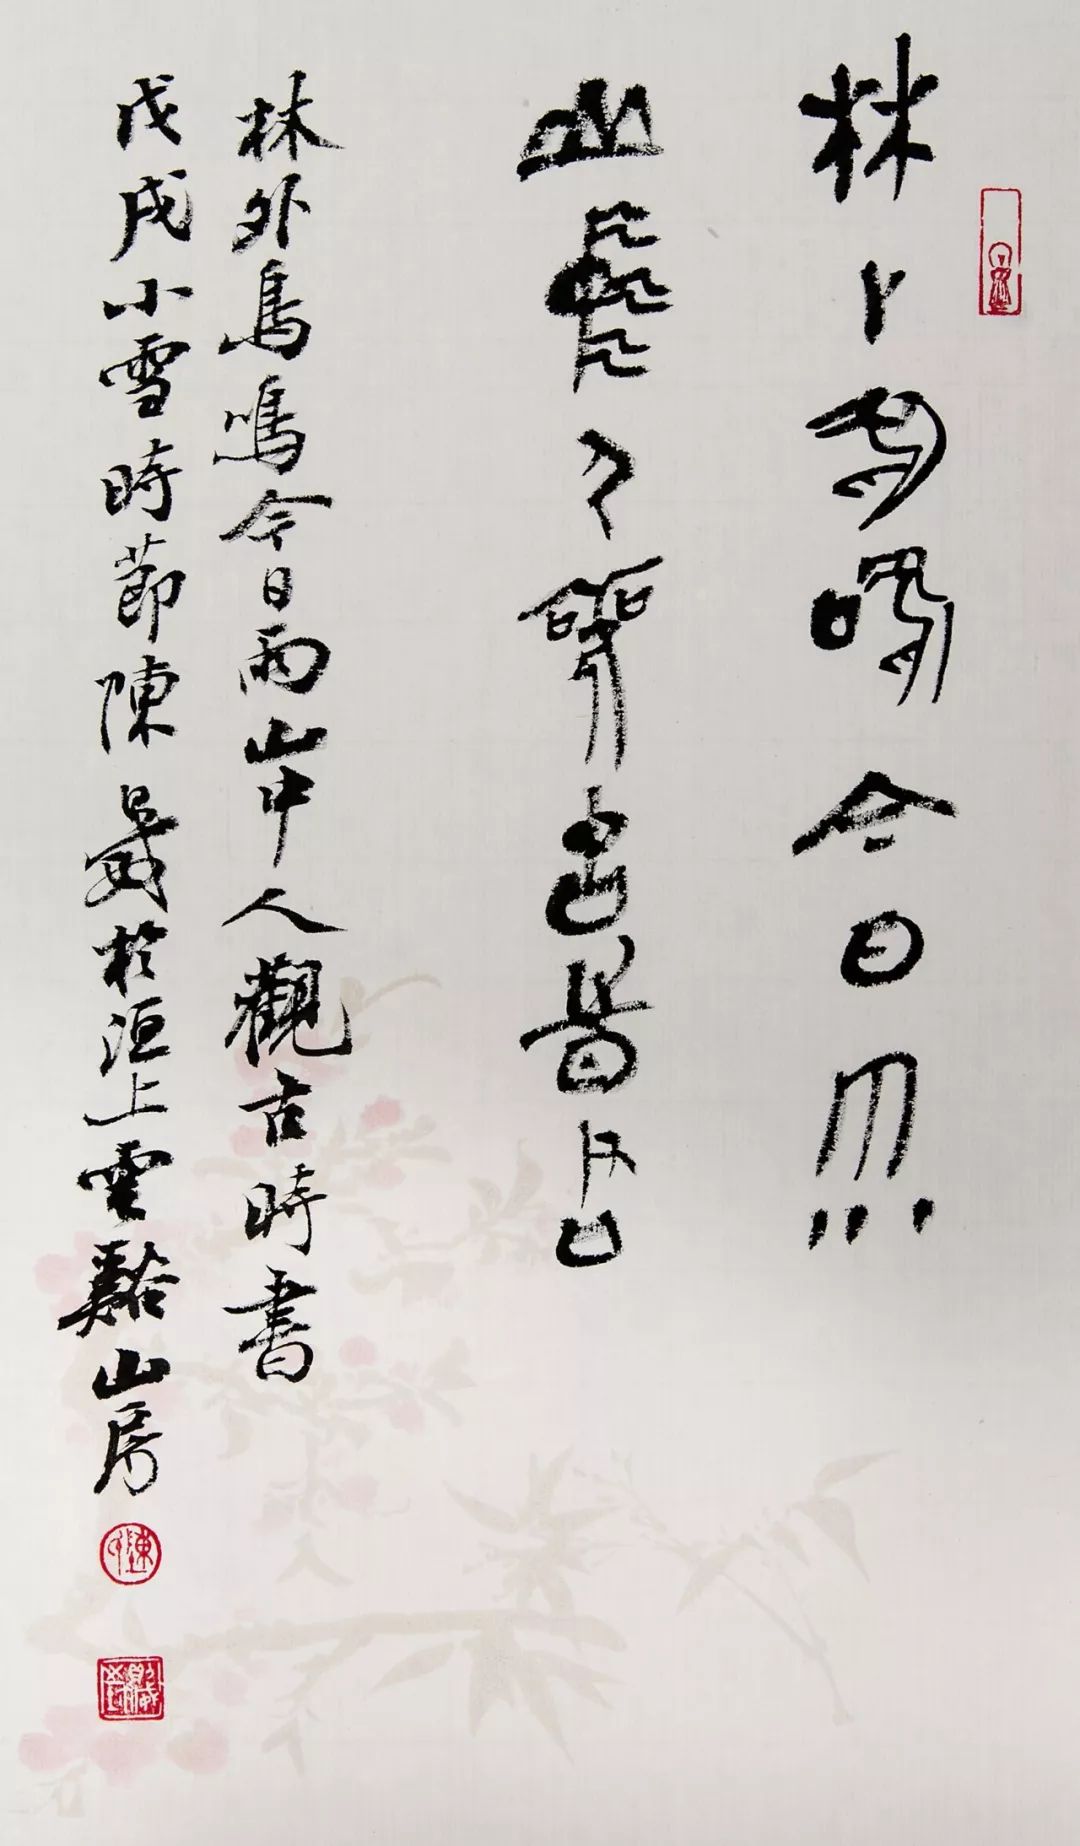 林外鳥鳴今日雨
山中人觀古時書
林外鳥鳴今日雨山中人觀古時書
戊戌小雪時節陳於洹上雲谿山房